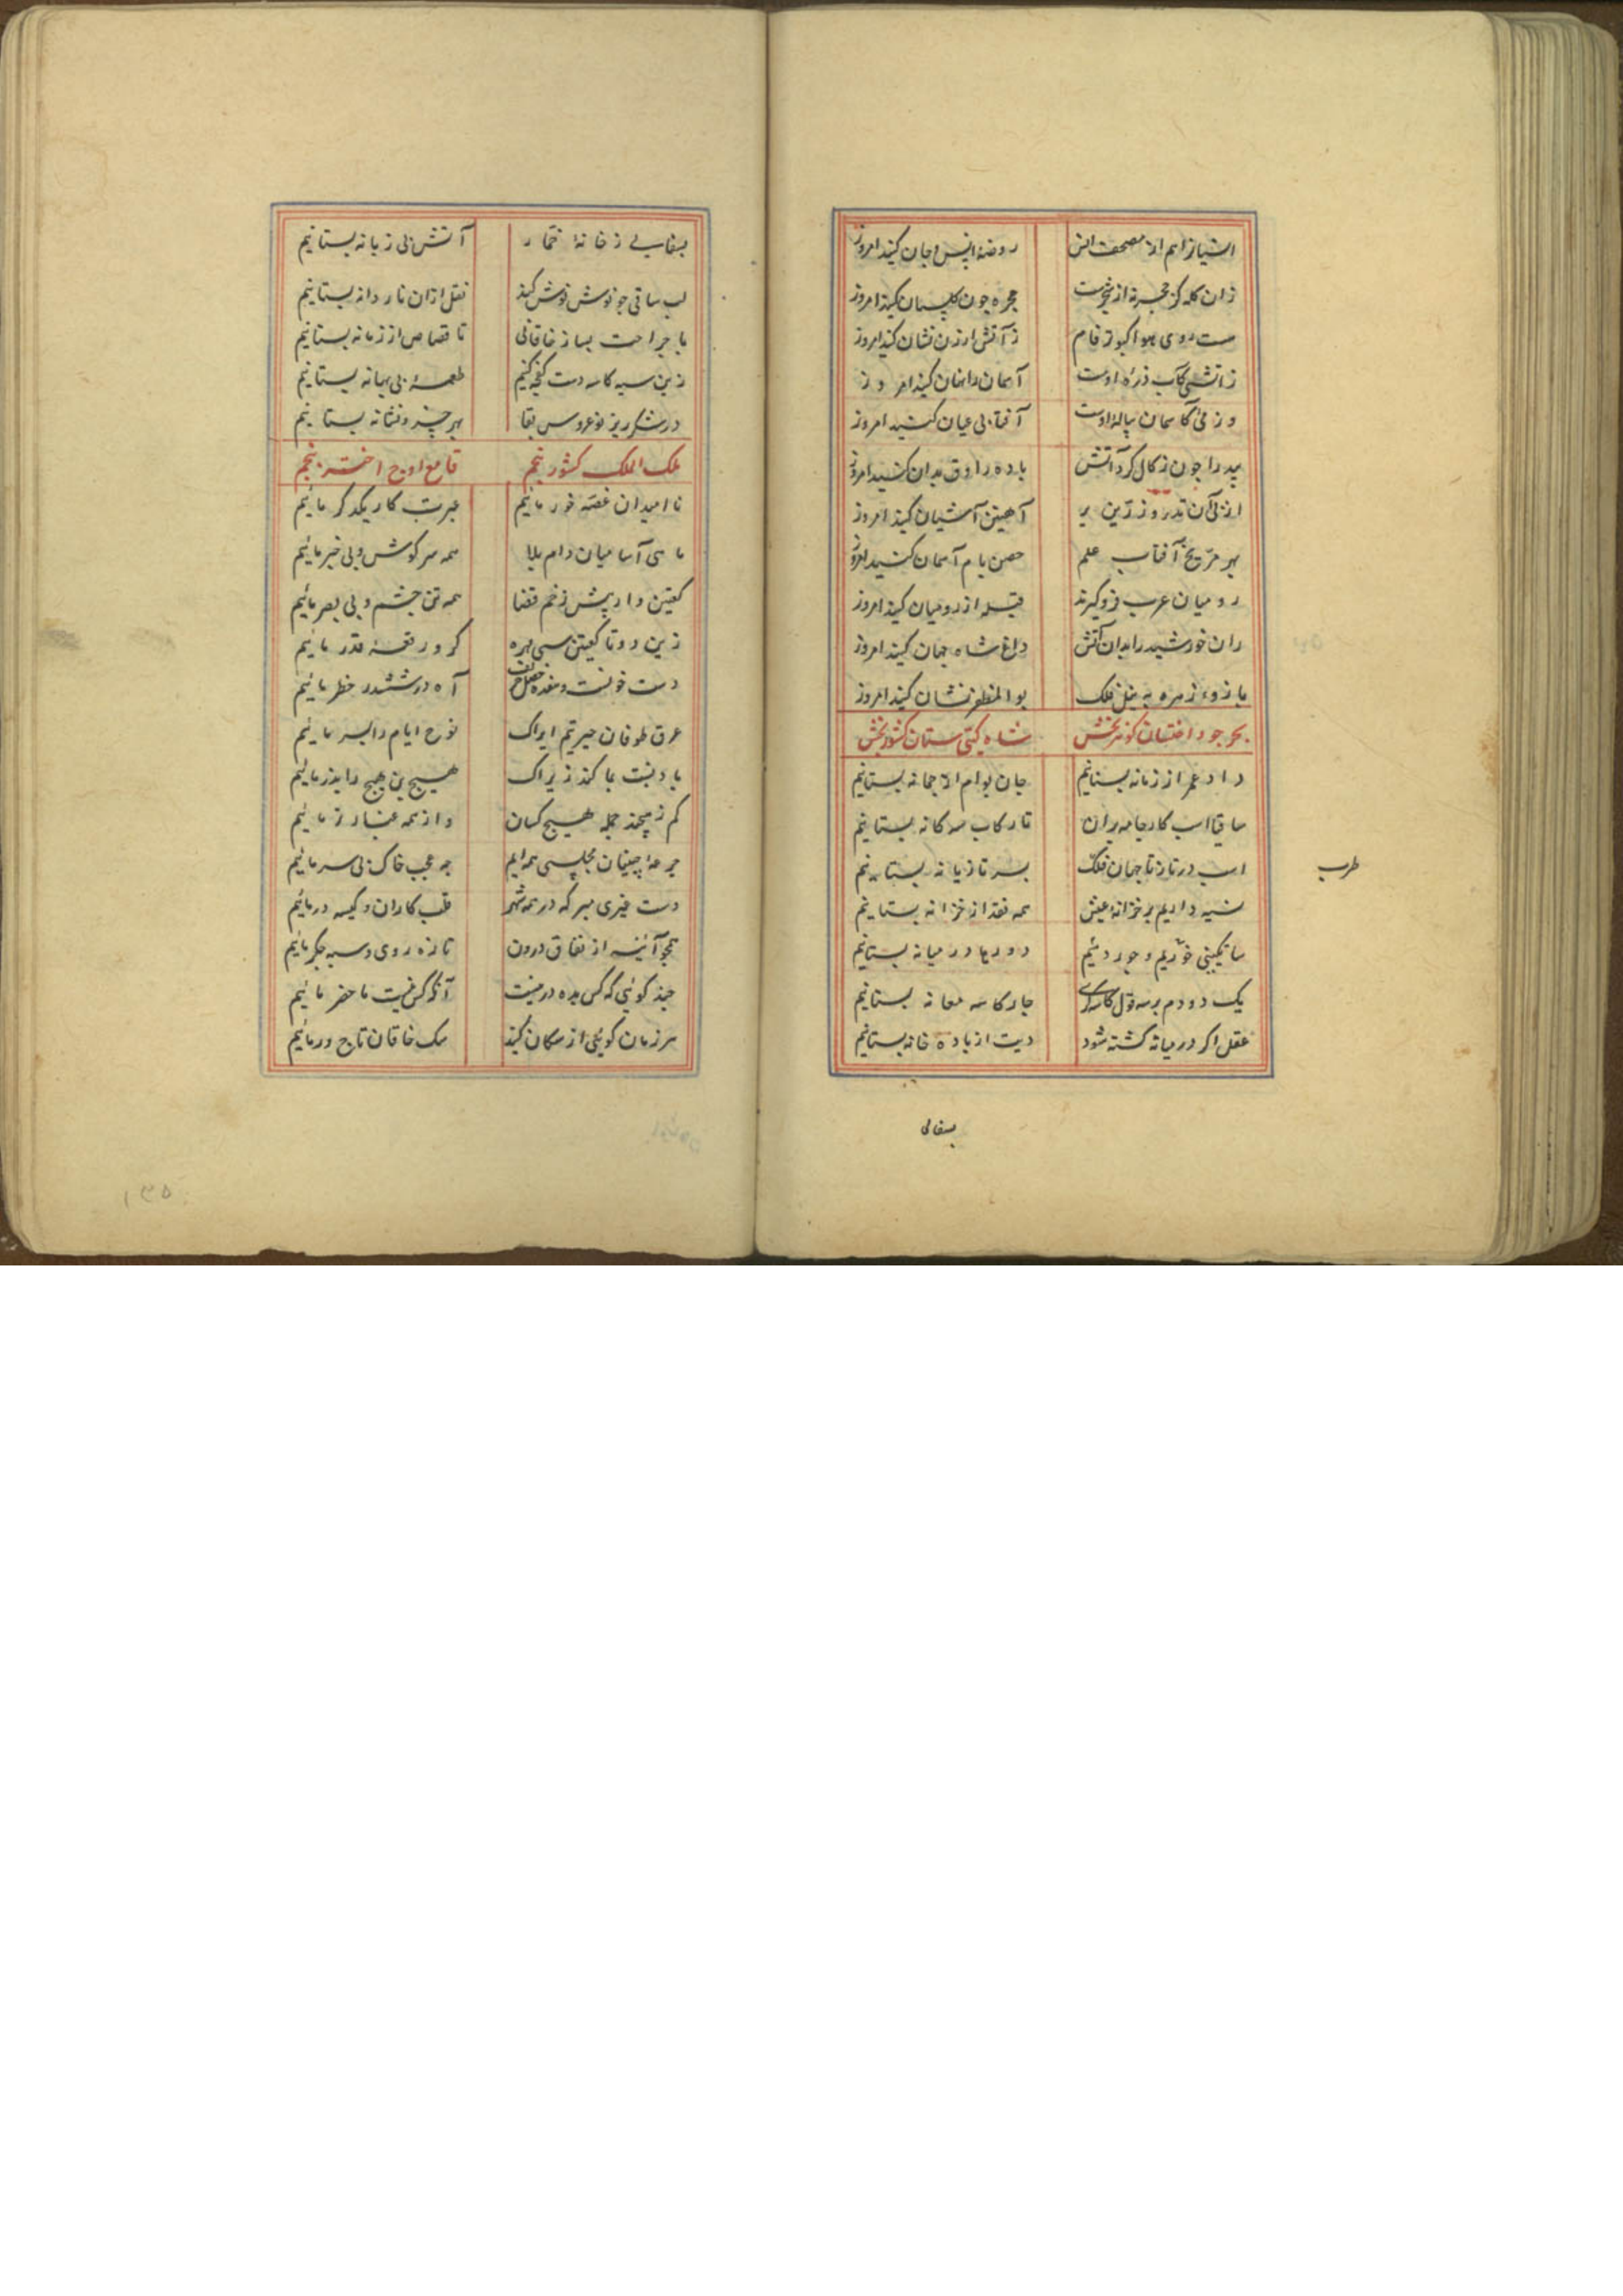 روضهٔ انس و جان کنید امروز
زان کله کز
حجره چون گلستان کنید امروز
هست روی هوا کبوتر فام
ز آتش ارزن نشان کنید امروز
زآتشی کآفتاب ذرهٔ اوست
آسمان را نهان کنید امروز
وز مئی کآسمان پیالهٔ اوست
آفتابی عیان کنید امروز
بید را چون زکال کرد آتش
باده راوق بدان کنید امروز
از پی آن تذرو زرین پر
آهنین آشیان کنید امروز
بهر مریخ آفتاب علم
حصن بام آسمان کنید امروز
رومیان عرب فروگیرند
قبله از رومیان کنید امروز
ران خورشید را بدان آتش
داغ شاه جهان کنید امروز
بازوء زهره به نیل فلک
بوالمظفر نشان کنید امروز
بحر جود اخستان گوهر بخش
شاه گیتی ستان کشور بخش
داد عمر از زمانه بستانیم
جان بوام از چمانه بستانیم
ساقیا اسب کار جامه بران
تا رکاب سه گانه بستانیم
اسب در تاز تا جهان فلک
بسر تازیانه بستانیم
طرب
سیه داریم بر خزانهٔ عیش
همه نقد از خزانه بستانیم
ساتگینی خوریم و جور دئیم
دورها در میانه بستانیم
یک دو دم بر سه قول کاسه گری
چار کاسه مغانه بستانیم
عقل اگر در میانه کشته شود
دیت از باده خانه بستانیم
بسفالی
بسفالی ز خانهٔ خمار
آتش بی زبانه بستانیم
لب ساقی چو نوش نوش کند
نقل ازان ناردانه بستانیم
با جراحت بساز خاقانی
تا قصاص از زمانه بستانیم
زین سیه کاسه دست کفچه کنیم
طعمهٔ بی بهانه بستانیم
در شکر ریز نوعروس بقا
بهر چیز و نشانه بستانیم
ملک الملک کشور پنجم
قامع اوج اختر پنجم
ناامیدان غصه خور مائیم
عبرت کار یکدگر مائیم
ماهی آسا میان دام بلا
همه سر گوش و بی خبر مائیم
کعبتین وار پیش زخم قضا
همه تن چشم و بی بصر مائیم
زین دو تا کعبتین سی مهره
گرو رقعهٔ قدر مائیم
دست خونست و هفده خصل حریف
آه در ششدر خطر مائیم
غرق طوفان حیرتیم ایراک
نوح ایام را پسر مائیم
باد پشت بما کند زیراک
هیچ بن هیچ را پدر مائیم
کم ز هیچند جمله هیچ کسان
واز همه هیچ کمتر مائیم
جرعه چینان مجلسی همه ایم
چه عجب خاک پی سپر مائیم
دست غیری مبر که در همه شهر
قلب کاران و کیسه در مائیم
همچو آئینه از نفاق درون
تازه روی و سیه جگر مائیم
چند گوئی که کس به ده در نیست
آنکه کس نیست ما حضر مائیم
هر زمان گوئی از سگان کیند
سک خاقان تاج ور مائیم
۱۳۵